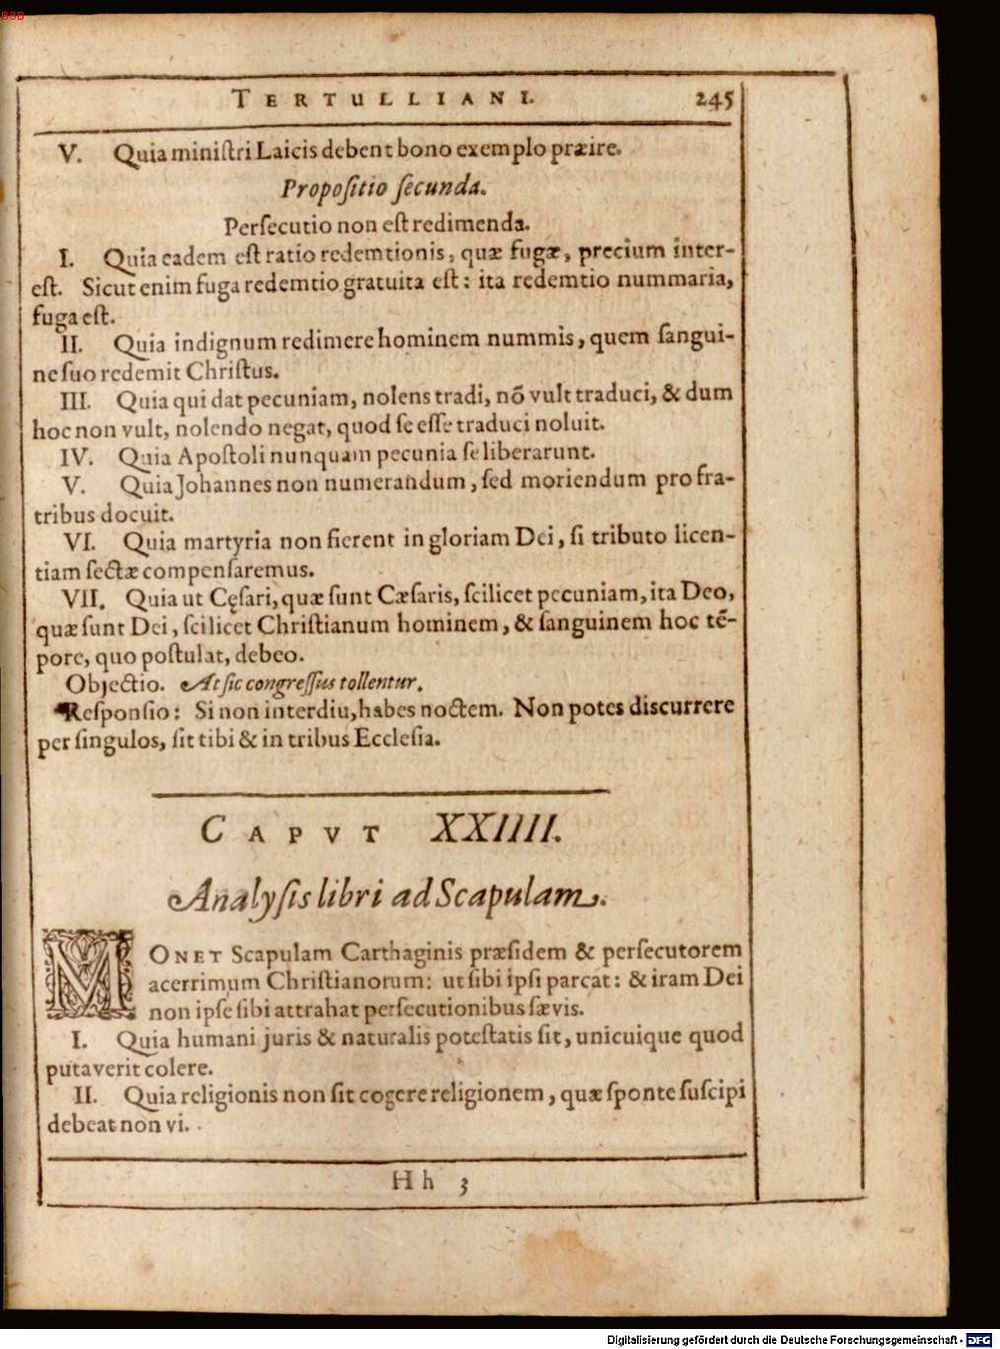 BSB
TERTULLIANI. 245
V. Quia miniſtri Laicis debent bono exemplo præire.
Propoſitio ſecunda.
Perſecutio non eſt redimenda.
I. Quia eadem eſt ratio redemtionis, quæ fugæ, precium inter-
eſt. Sicut enim fuga redemtio gratuita eſt: ita redemtio nummaria,
fuga eſt.
II. Quia indignum redimere hominem nummis, quem ſangui-
ne ſuo redemit Chriſtus.
III. Quia qui dat pecuniam, nolens tradi, nõ vult traduci, & dum
hoc non vult, nolendo negat, quod ſe eſſe traduci noluit.
IV. Quia Apoſtoli nunquam pecunia ſe liberarunt.
V. Quia Johannes non numerandum, ſed moriendum pro fra-
tribus docuit.
VI. Quia martyria non fierent in gloriam Dei, ſi tributo licen-
tiam ſectæ compenſaremus.
VII. Quia ut Cęſari, quæ ſunt Cæſaris, ſcilicet pecuniam, ita Deo,
quæ ſunt Dei, ſcilicet Chriſtianum hominem, & ſanguinem hoc tẽ-
pore, quo poſtulat, debeo.
Objectio. At ſic congreſſus tollentur.
Reſponſio: Si non interdiu, habes noctem. Non potes discurrere
per ſingulos, ſit tibi & in tribus Eccleſia.
CAPVT XXIIII.
Analyſis libri ad Scapulam.
MONET Scapulam Carthaginis præſidem & perſecutorem
acerrimum Chriſtianorum: ut ſibi ipſi parcat: & iram Dei
non ipſe ſibi attrahat perſecutionibus ſævis.
I. Quia humani juris & naturalis poteſtatis ſit, unicuique quod
putaverit colere.
II. Quia religionis non ſit cogere religionem, quæ ſponte ſuſcipi
debeat non vi.
Hh 3
Digitalisierung gefördert durch die Deutsche Forschungsgemeinschaft - DFG